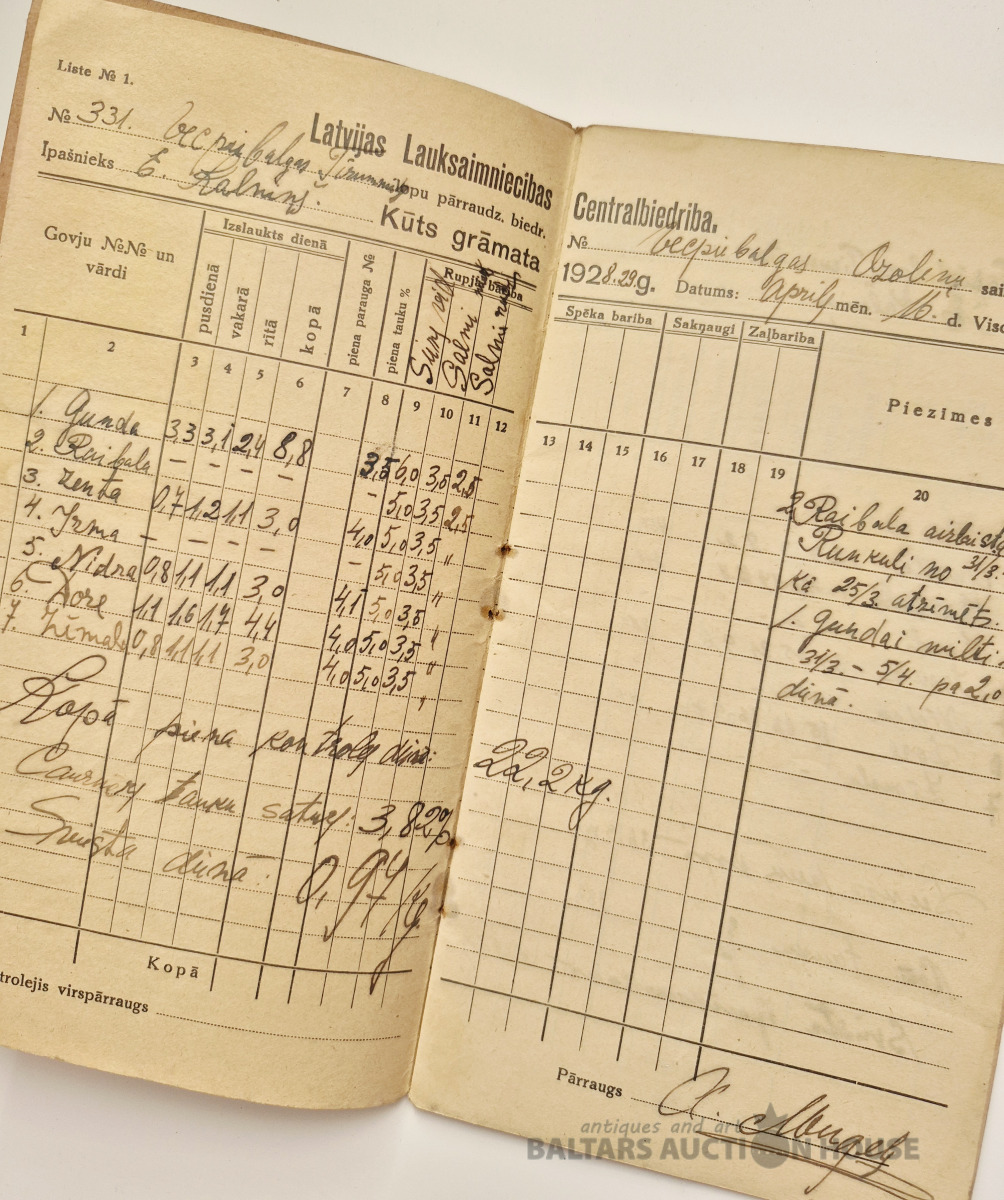 Liste № 1.
Latvijas Lauksaimniecības
№ 331. Vecpiebalgas lopu pārraudz. biedr.
Īpašnieks E. Kalniņš.
Kūts grāmata
Govju №№ un vārdi
Izslaukts dienā
pusdienā
vakarā
rītā
kopā
piena parauga №
piena tauku %
Rupjā barība
Salmi
1 2 3 4 5 6 7 8 9 10 11 12
1. Gunda 3,3 3,1 2,4 8,8 3,5 6,0 3,5 2,5
2. Raibala – – – – – 5,0 3,5 2,5
3. Zenta 0,7 1,2 1,1 3,0 4,0 5,0 3,5 "
4. Irma – – – – – 5,0 3,5 "
5. Nidra 0,8 1,1 1,1 3,0 4,1 5,0 3,5 "
6. Dore 1,1 1,6 1,7 4,4 4,0 5,0 3,5 "
7. Zīmala 0,8 1,1 1,1 3,0 4,0 5,0 3,5 "
Kopā piena kontroles dienā:
tauku saturs: 3,82%
Sviesta dienā: 0,97 kg.
Kopā
trolejis virspārraugs
Centralbiedrība.
№ Vecpiebalgas Ozoliņu sai
1928.29.g. Datums: Aprīļ mēn. 16. d. Visc
Spēka barība
Sakņaugi
Zaļbarība
Piezīmes
13 14 15 16 17 18 19 20
2. Raibala aizlaista
Runkuļi no 31/3.
kā 25/3. atzīmēts.
1. Gundai milti
31/3. – 5/4. pa 2,0
dienā.
22,2 kg.
Pārraugs
antiques and art
BALTARS AUCTION HOUSE